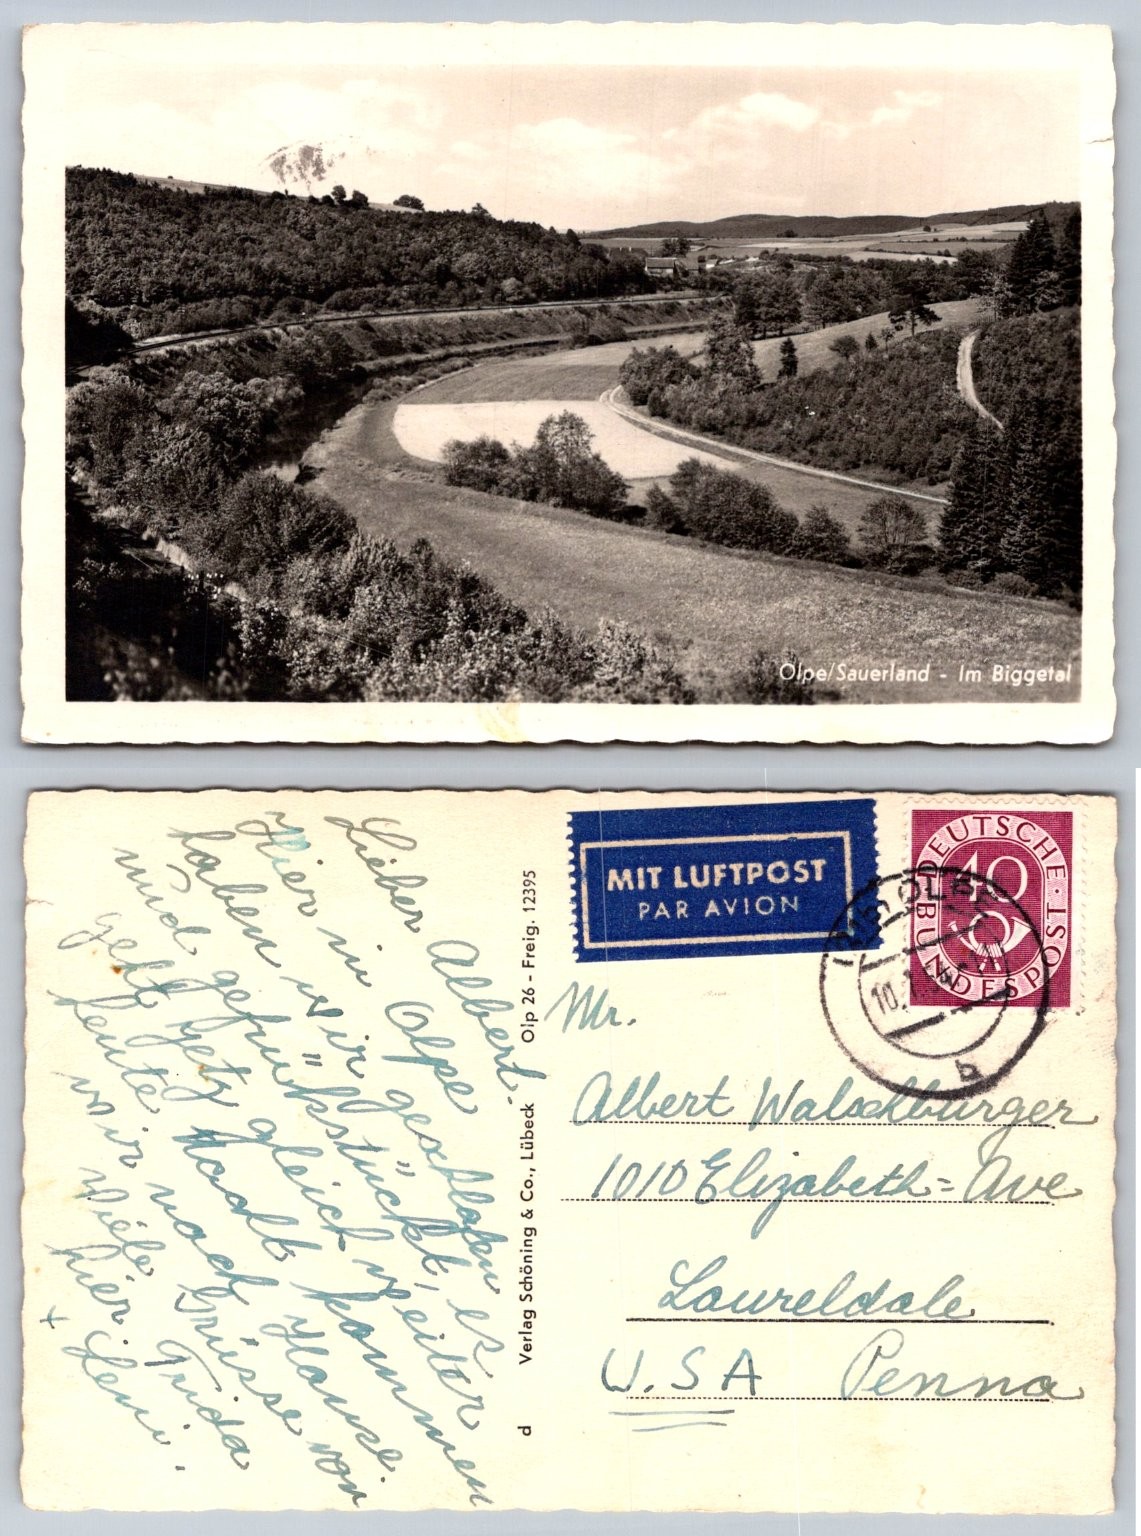 Olpe/Sauerland - Im Biggetal
Lieber Albert.
Hier in Olpe
haben wir geschlafen
und gefrühstückt, es
geht jetz gleich weiter
heute Nacht kommen
wir nach Hause.
Viele Grüsse von
hier. Frida
+ Leni.
d Verlag Schöning & Co., Lübeck Olp 26 - Freig. 12395
MIT LUFTPOST
PAR AVION
DEUTSCHE
BUNDESPOST
40
OLPE
b
Mr.
Albert Walschburger
1010 Elizabeth=Ave
Laureldale
U.S.A Penna